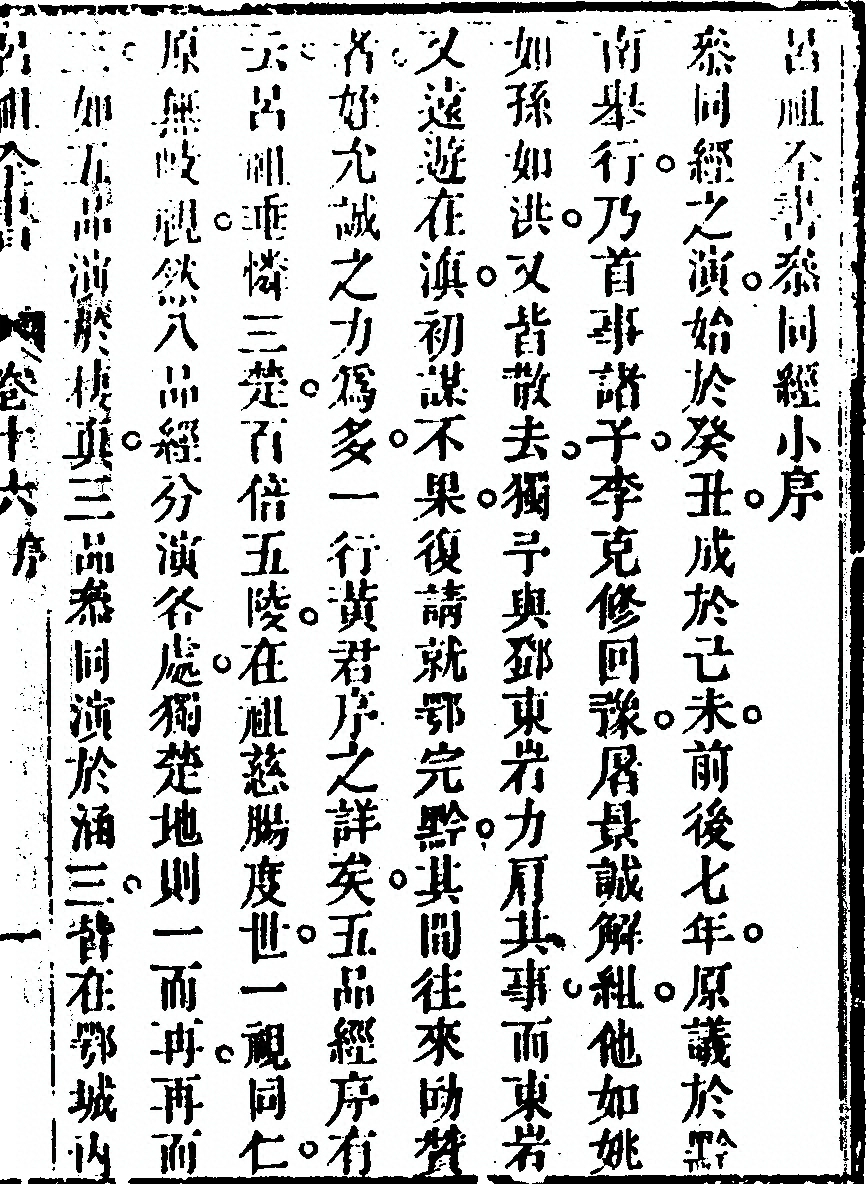 呂祖全書叅同經小序
叅同經之演。始於癸丑。成於己未。前後七年。原議於黔
南舉行。乃首事諸子。李克修回豫。屠景誠解組。他如姚
如孫如洪。又皆散去。獨予與鄧東岩力肩其事。而東岩
又遠遊在滇。初謀不果。復請就鄂完黔。其間往來勷贊
者。好允誠之力爲多。一行黃君序之詳矣。五品經序有
云。呂祖垂憐三楚。百倍五陵。在祖慈腸度世。一視同仁。
原無岐視。然八品經分演各處。獨楚地則一而再。再而
三。如五品演於棲真。三品叅同演於涵三。皆在鄂城內
呂祖全書 卷十六 序 一